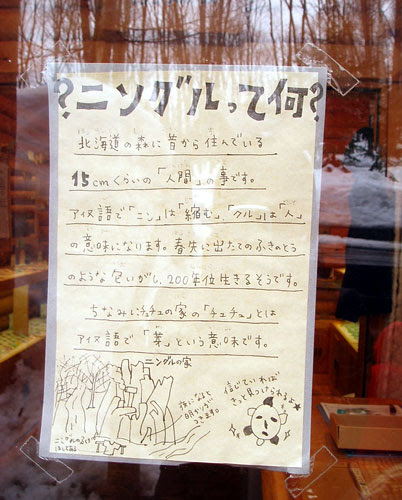 ?ニングルって何?
北海道の森に昔から住んでいる
15cmくらいの「人間」の事です。
アイヌ語で「ニン」は「縮む」、「クル」は「人」
の意味になります。春先に出たてのふきのとう
のような匂いがし、200年位生きるそうです。
ちなみにチュチュの家の「チュチュ」とは
アイヌ語で「葉」という意味です。
ニングルの家
夜になると
明かりが
つきます。
信じていれば
きっと見つけられるよ★